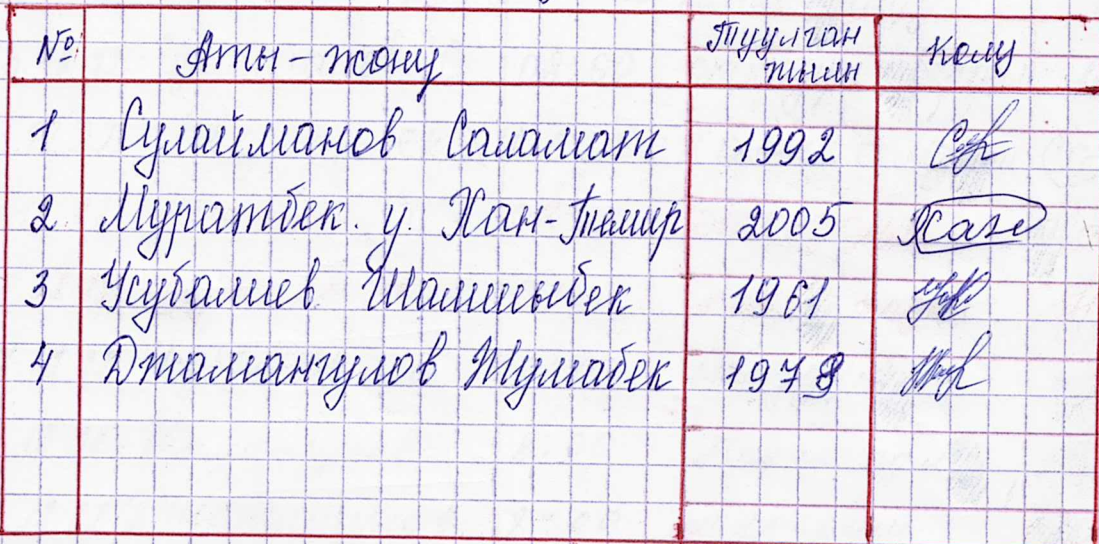 № Аты-жөнү Туулган жылы Колу
1 Сулайманов Саламат 1992
2 Муратбек. у. Хан-Темир 2005 Хан
3 Усубалиев Шамшыбек 1961
4 Джамангулов Жумабек 1979